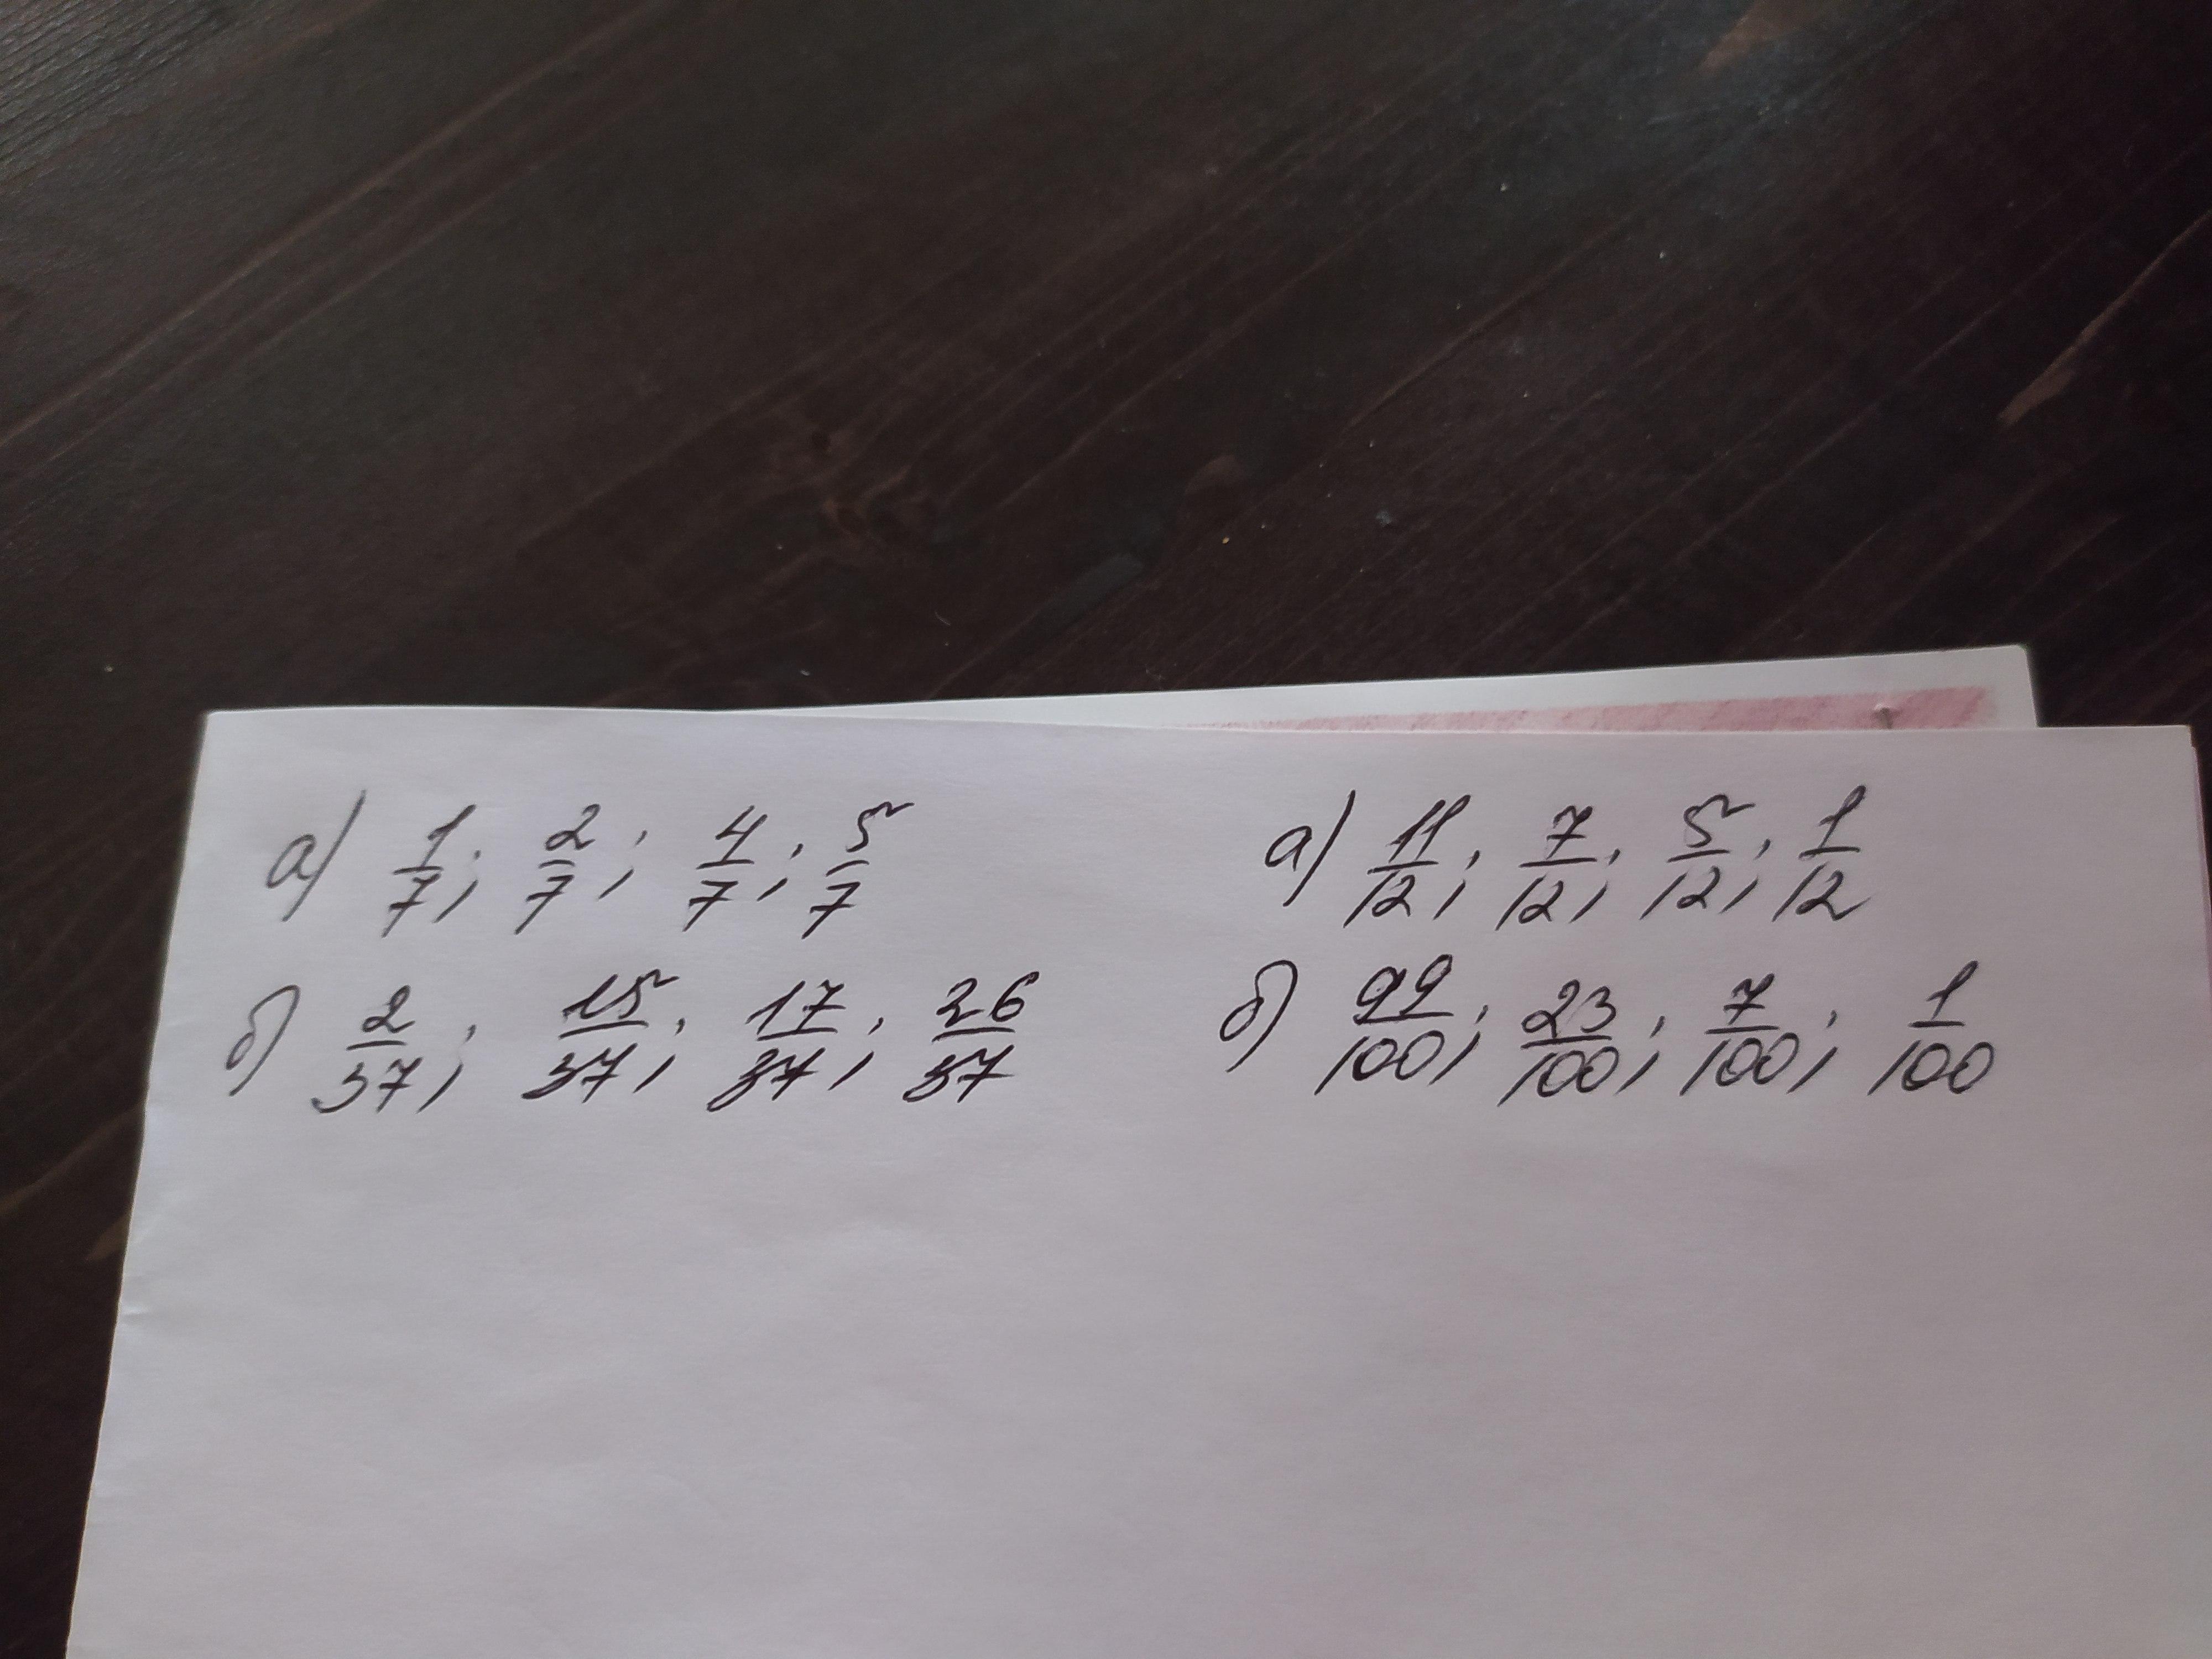 а) 1/7; 2/7; 4/7; 5/7
б) 2/37; 15/37; 17/37; 26/37
а) 11/12; 7/12; 5/12; 1/12
б) 99/100; 23/100; 7/100; 1/100